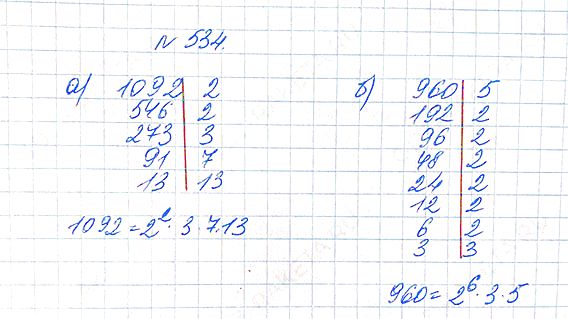 № 534.
а) 1092 | 2
546 | 2
273 | 3
91 | 7
13 | 13
1092 = 2² · 3 · 7 · 13
б) 960 | 5
192 | 2
96 | 2
48 | 2
24 | 2
12 | 2
6 | 2
3 | 3
960 = 2⁶ · 3 · 5